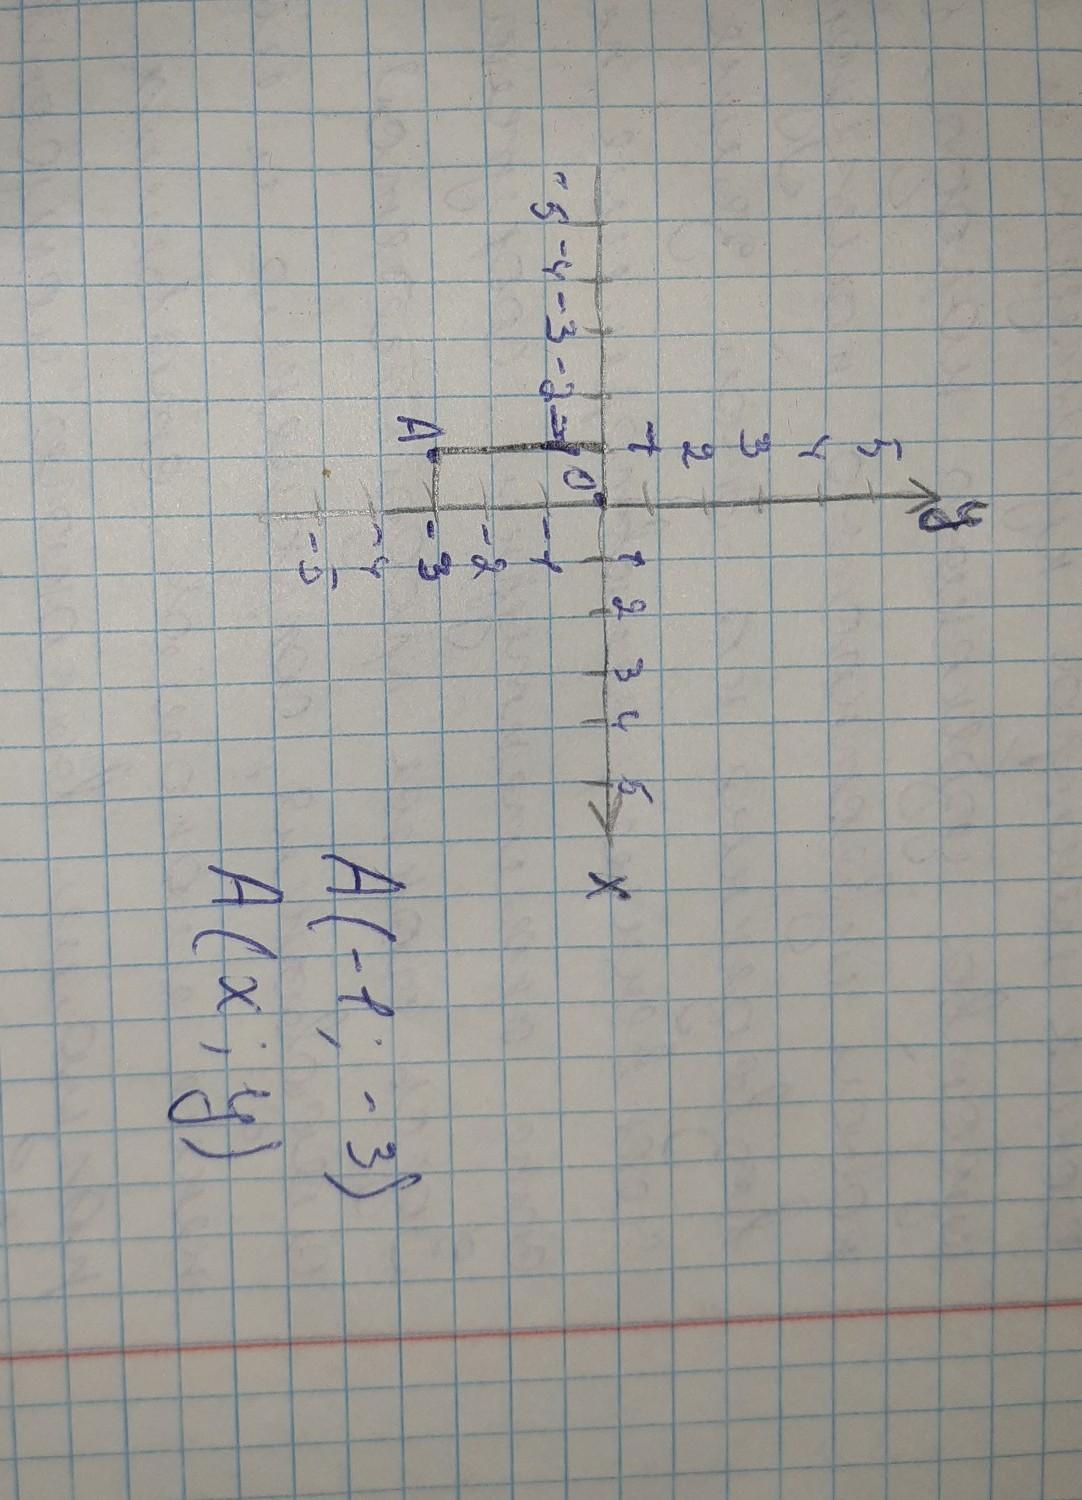 y
5
4
3
2
1
-5 -4 -3 -2 -1 0 1 2 3 4 5 x
-1
-2
A -3
-4
-5
A(-1; -3)
A(x; y)